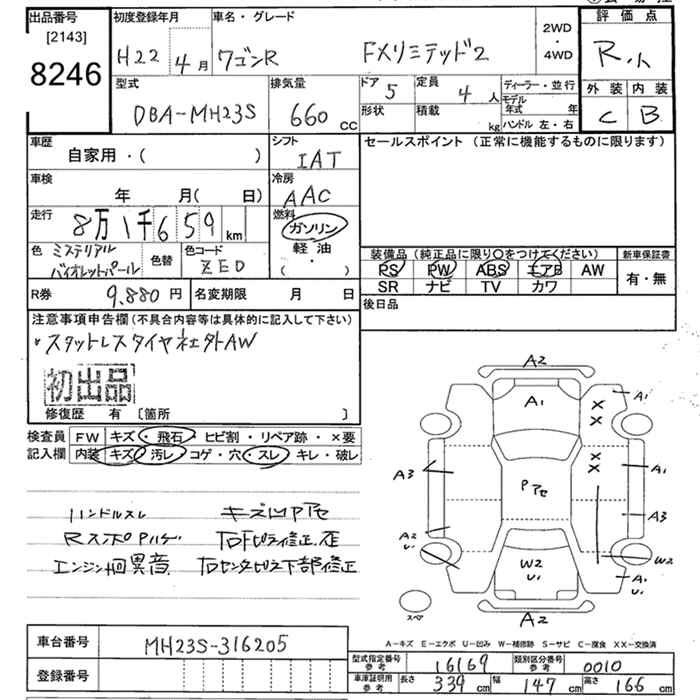 出品番号
[2143]
8246
初度登録年月
H22 4月
車名・グレード
ワゴンR FXリミテッド2
2WD
・
4WD
評価点
R.
外装 内装
C B
型式
DBA-MH23S
排気量
660 cc
ドア
5
定員
4 人
形状
積載
kg
ディーラー・並行
モデル
年式 年
ハンドル 左・右
車歴
自家用・( )
シフト
IAT
セールスポイント (正常に機能するものに限ります)
車検
年 月( 日)
冷房
AAC
走行
8万1千659 km
燃料
ガソリン
軽油
( ・ )
色
ミステリアル
バイオレットパール
色替
色コード
ZED
装備品 (純正品に限り〇をつけてください)
新車保証書
PS PW ABS エアB AW
有・無
SR ナビ TV カワ
R券 9,880 円
名変期限 月 日
後日品
注意事項申告欄 (不具合内容等は具体的に記入して下さい)
・スタットレスタイヤ社外AW
初出品
修復歴 有 [箇所 ]
検査員
記入欄
FW キズ・飛石・ヒビ割・リペア跡・×要
内装 キズ・汚レ・コゲ・穴・スレ・キレ・破レ
ハンドルスレ キズ凹アセ
エンジン 異音
A2
A1
A1
X
X
X
X
A3
Pアセ
A1
A3
A2
U1
W2
U1
W2
A1
U1
A2
スペア
A-キズ E-エクボ U-凹み W-補修跡 S-サビ C-腐食 XX-交換済
車台番号
MH23S-316205
登録番号
型式指定番号
参考
16169
類別区分番号
参考
0010
車庫証明用
参考
長さ 339 cm
幅 147 cm
高さ 166 cm